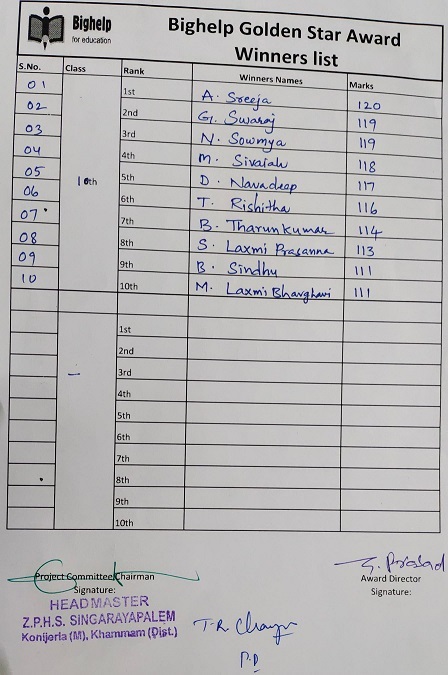 Bighelp
for education
Bighelp Golden Star Award
Winners list
S.No. Class Rank Winners Names Marks
01 1st A. Sreeja 120
02 2nd G. Swaraj 119
03 3rd N. Sowmya 119
04 4th M. Sivaiah 118
05 10th 5th D. Navadeep 117
06 6th T. Rishitha 116
07 7th B. Tharunkumar 114
08 8th S. Laxmi Prasanna 113
09 9th B. Sindhu 111
10 10th M. Laxmi Bharghavi 111
1st
2nd
3rd
4th
5th
6th
7th
8th
9th
10th
Project Committee Chairman
Signature:
HEADMASTER
Z.P.H.S. SINGARAYAPALEM
Konijerla (M), Khammam (Dist.)
P.D
Prasad
Award Director
Signature: